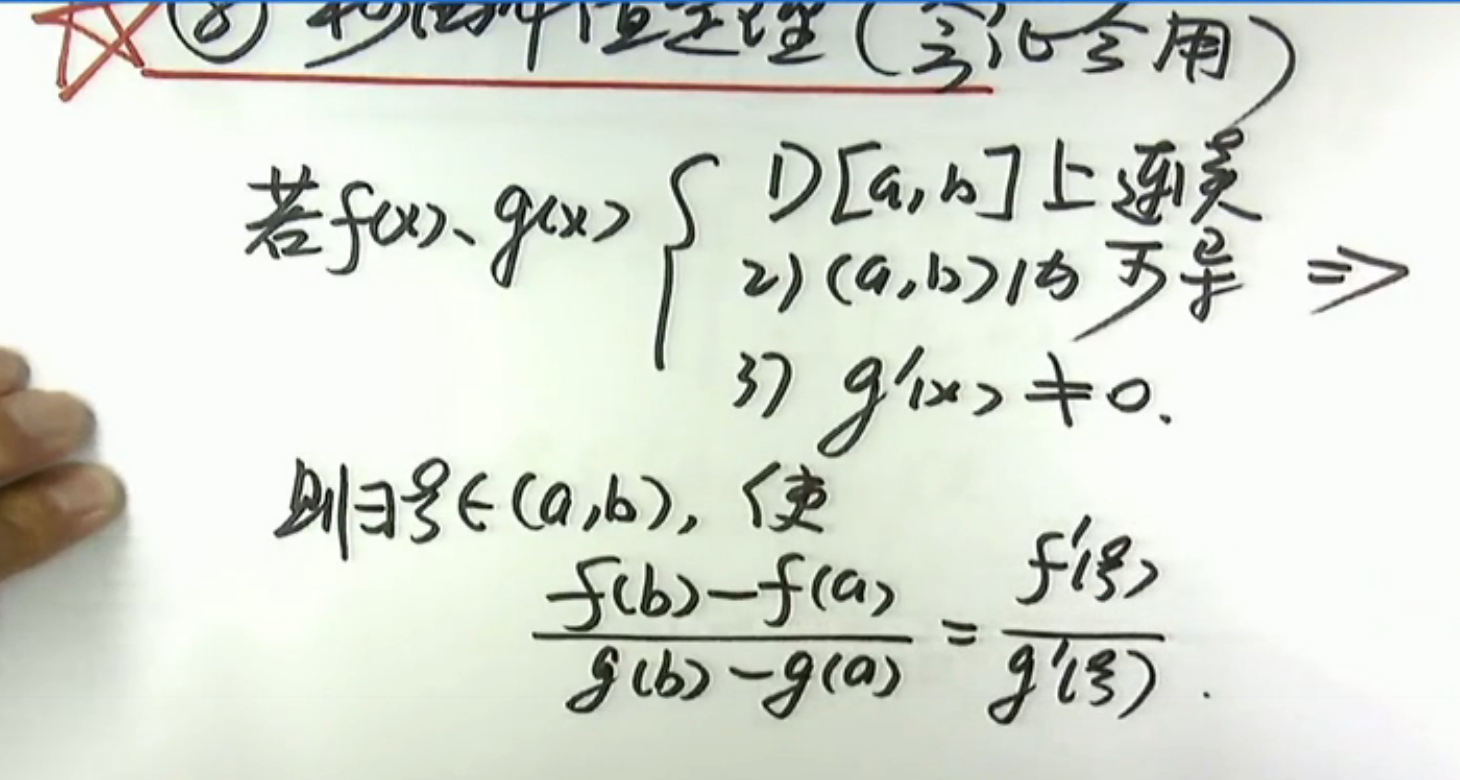 ⑧ 柯西中值定理(会证会用)
若f(x)、g(x) { 1) [a,b]上连续
2) (a,b)内可导 ⇒
3) g'(x)≠0.
则∃ξ∈(a,b), 使
f(b)-f(a) / g(b)-g(a) = f'(ξ) / g'(ξ) .